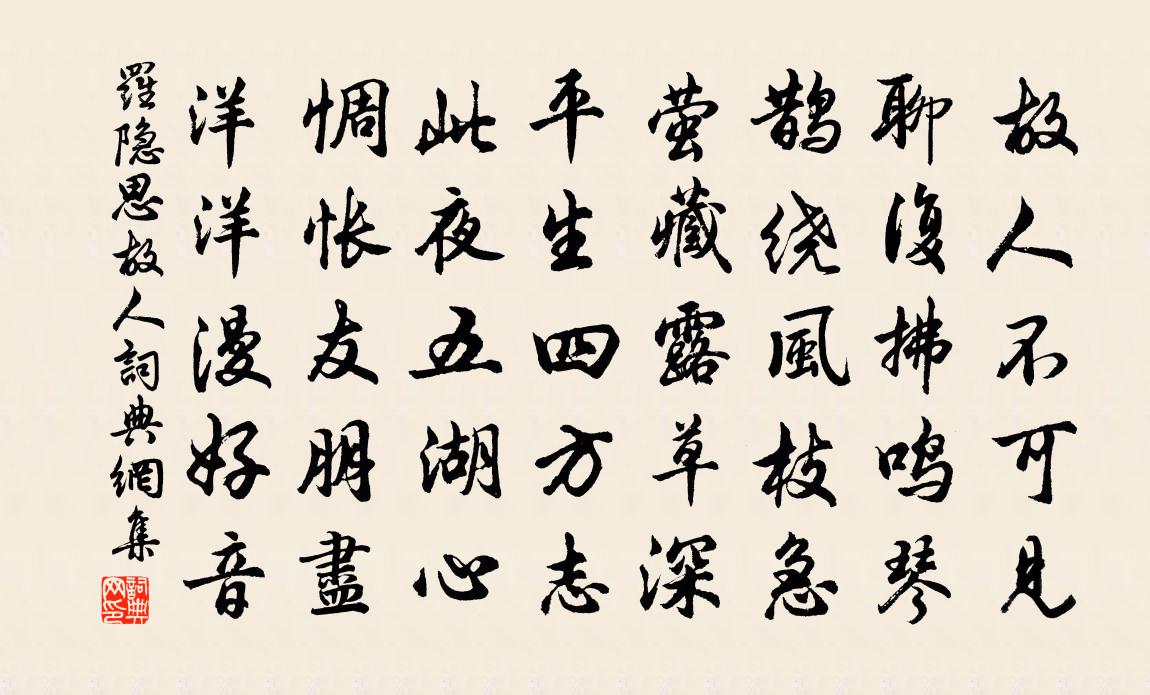 故人不可見
聊復拂鸣琴
鹊绕風枝急
萤藏露草深
平生四方志
此夜五湖心
惆怅友朋盡
洋洋漫好音
羅隐思故人詞典網集
詞典網印